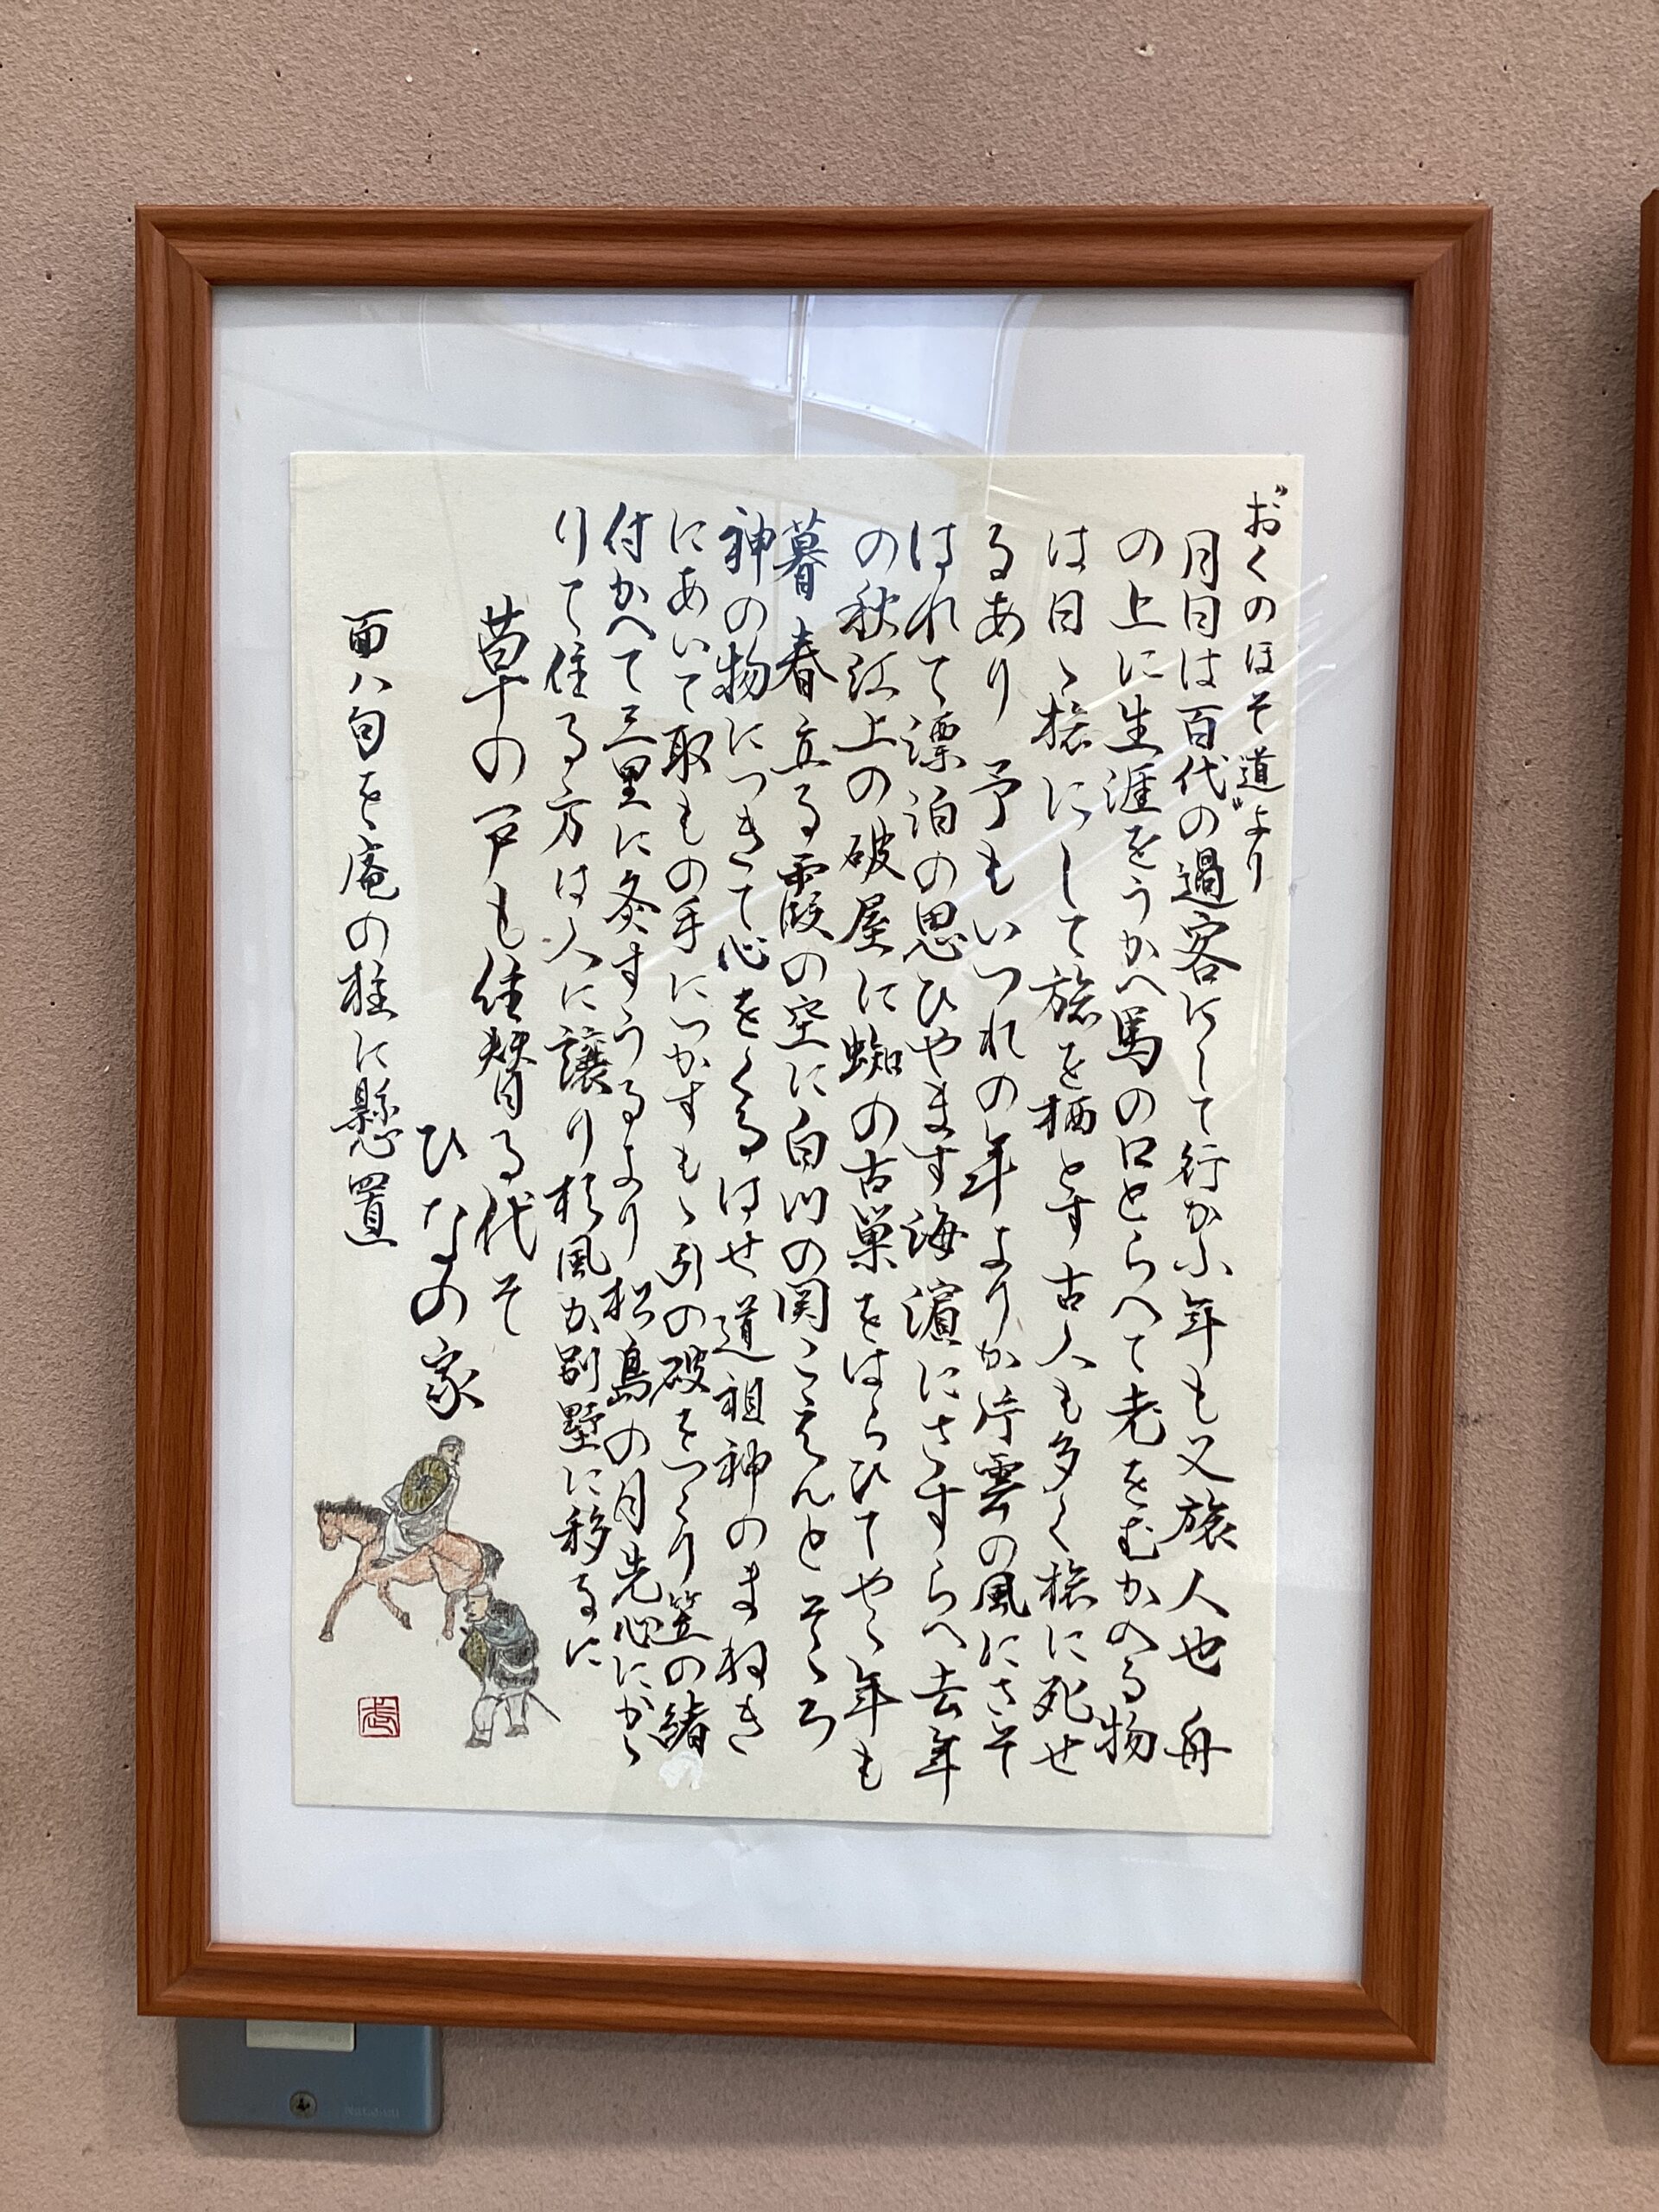 "おくのほそ道"より
月日は百代の過客にして行かふ年も又旅人也舟
の上に生涯をうかへ馬の口とらへて老をむかへる物
は日ゝ旅にして旅を栖とす古人も多く旅に死せ
るあり予もいつれの年よりか片雲の風にさそ
はれて漂泊の思ひやます海濱にさすらへ去年
の秋江上の破屋に蜘の古巣をはらひてやゝ年も
暮春立る霞の空に白川の関こえんとそゝろ
神の物につきて心をくるはせ道祖神のまねき
にあいて取もの手につかすもゝ引の破をつゝり笠の緒
付かへて三里に灸すうるより松島の月先心にかゝ
りて住る方は人に譲り杉風か別墅に移るに
草の戸も住替る代そ
ひなの家
面八句を庵の柱に懸置